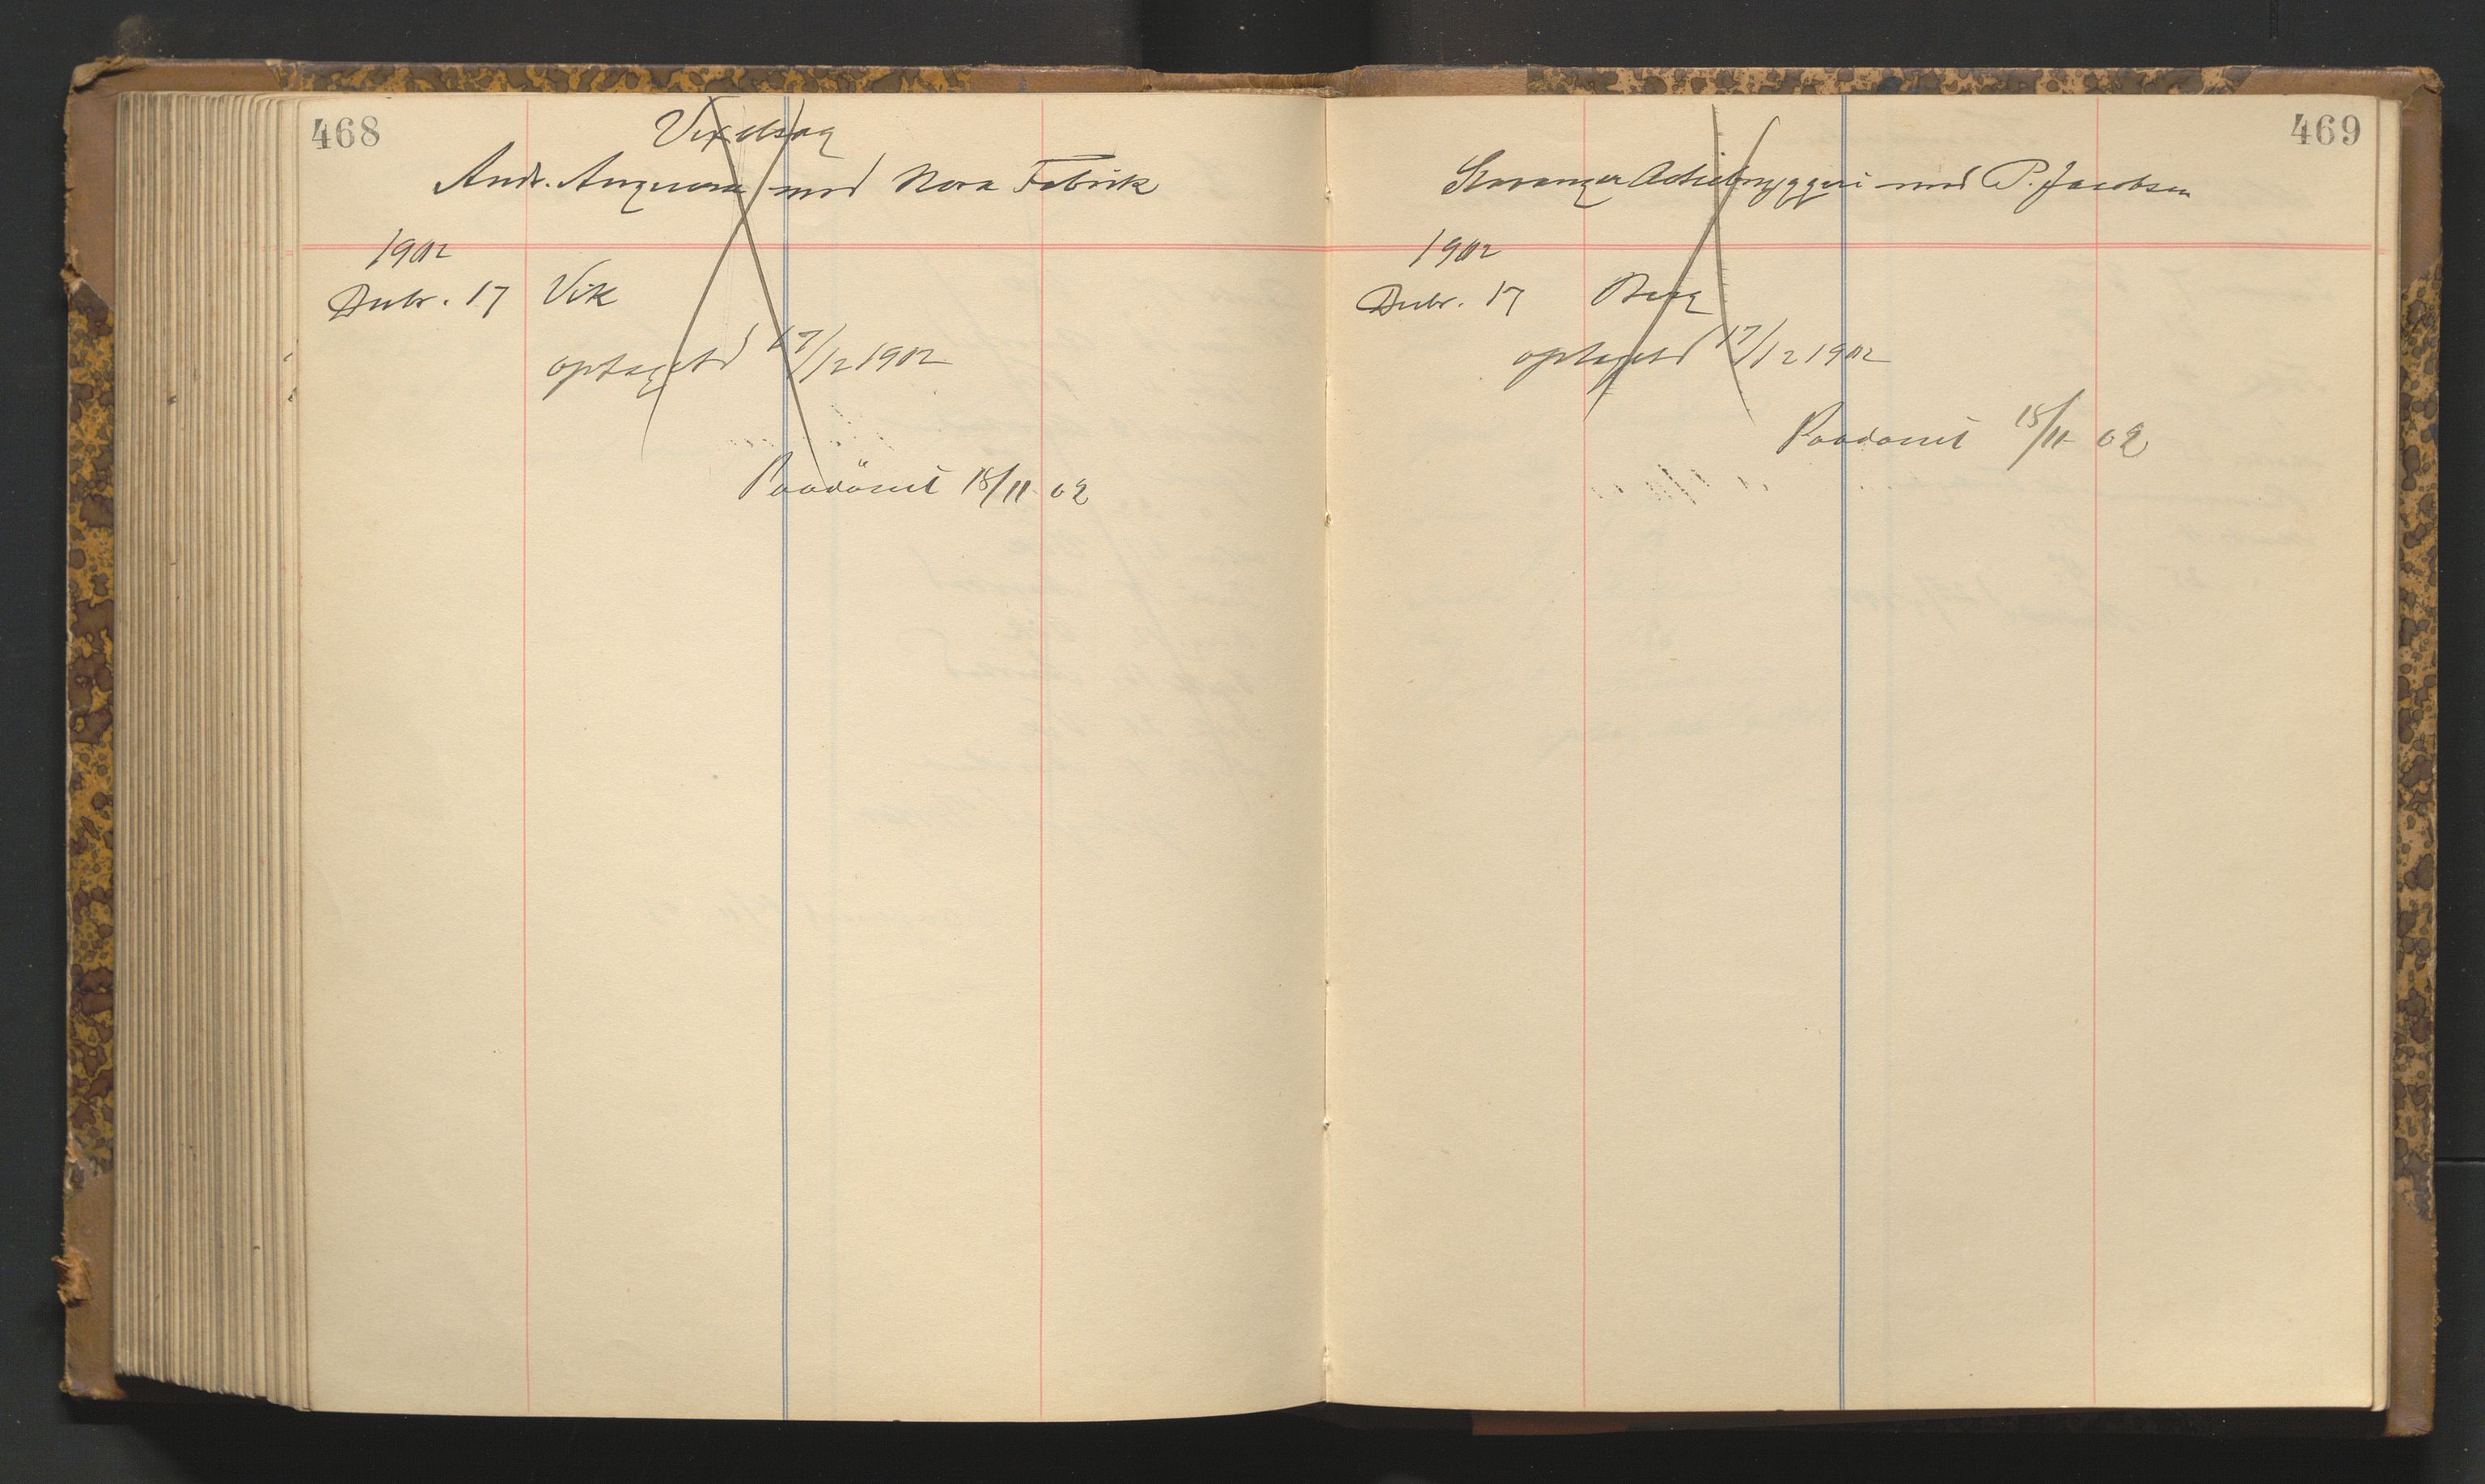 468
Vexelsag
Andr. Anzjøen mod Nora Fabrik
1902
Debr. 17 Vik
optaget d 17/12 1902
Paadømt 18/11 02
469
Stavanger Actiebryggeri mod P. Jacobsen
1902
Debr. 17 Berg
optaget d 17/12 1902
Paadømt 18/11 02